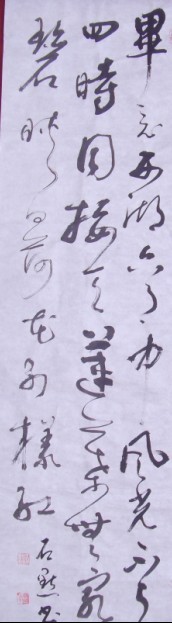 畢竟西湖六月中風光不與
四時同接天蓮葉無窮
碧映日荷花別樣紅
石